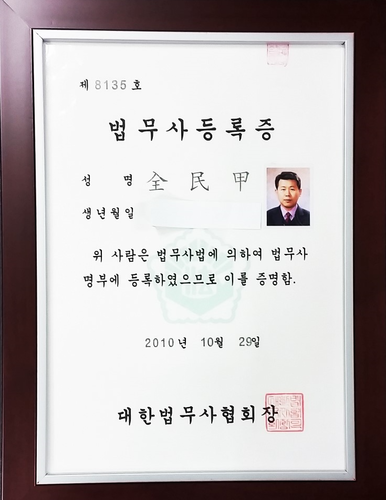 제 8135 호
법무사등록증
성 명 全民甲
생년월일
위 사람은 법무사법에 의하여 법무사
명부에 등록하였으므로 이를 증명함.
2010년 10월 29일
대한법무사협회장